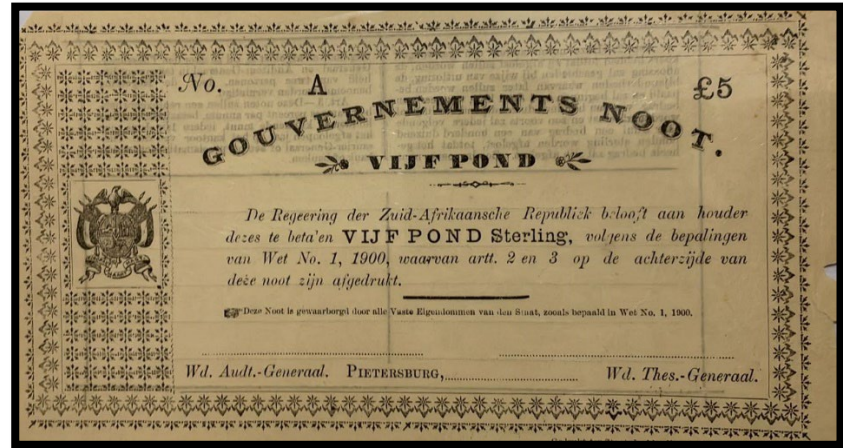 No. A £5
GOUVERNEMENTS NOOT.
VIJF POND
De Regeering der Zuid-Afrikaansche Republiek belooft aan houder
dezes te beta'en VIJF POND Sterling, volgens de bepalingen
van Wet No. 1, 1900, waarvan artt. 2 en 3 op de achterzijde van
deze noot zijn afgedrukt.
Deze Noot is gewaarborgd door alle Vaste Eigendommen van den Staat, zooals bepaald in Wet No. 1, 1900.
Wd. Audt.-Generaal. PIETERSBURG, Wd. Thes.-Generaal.